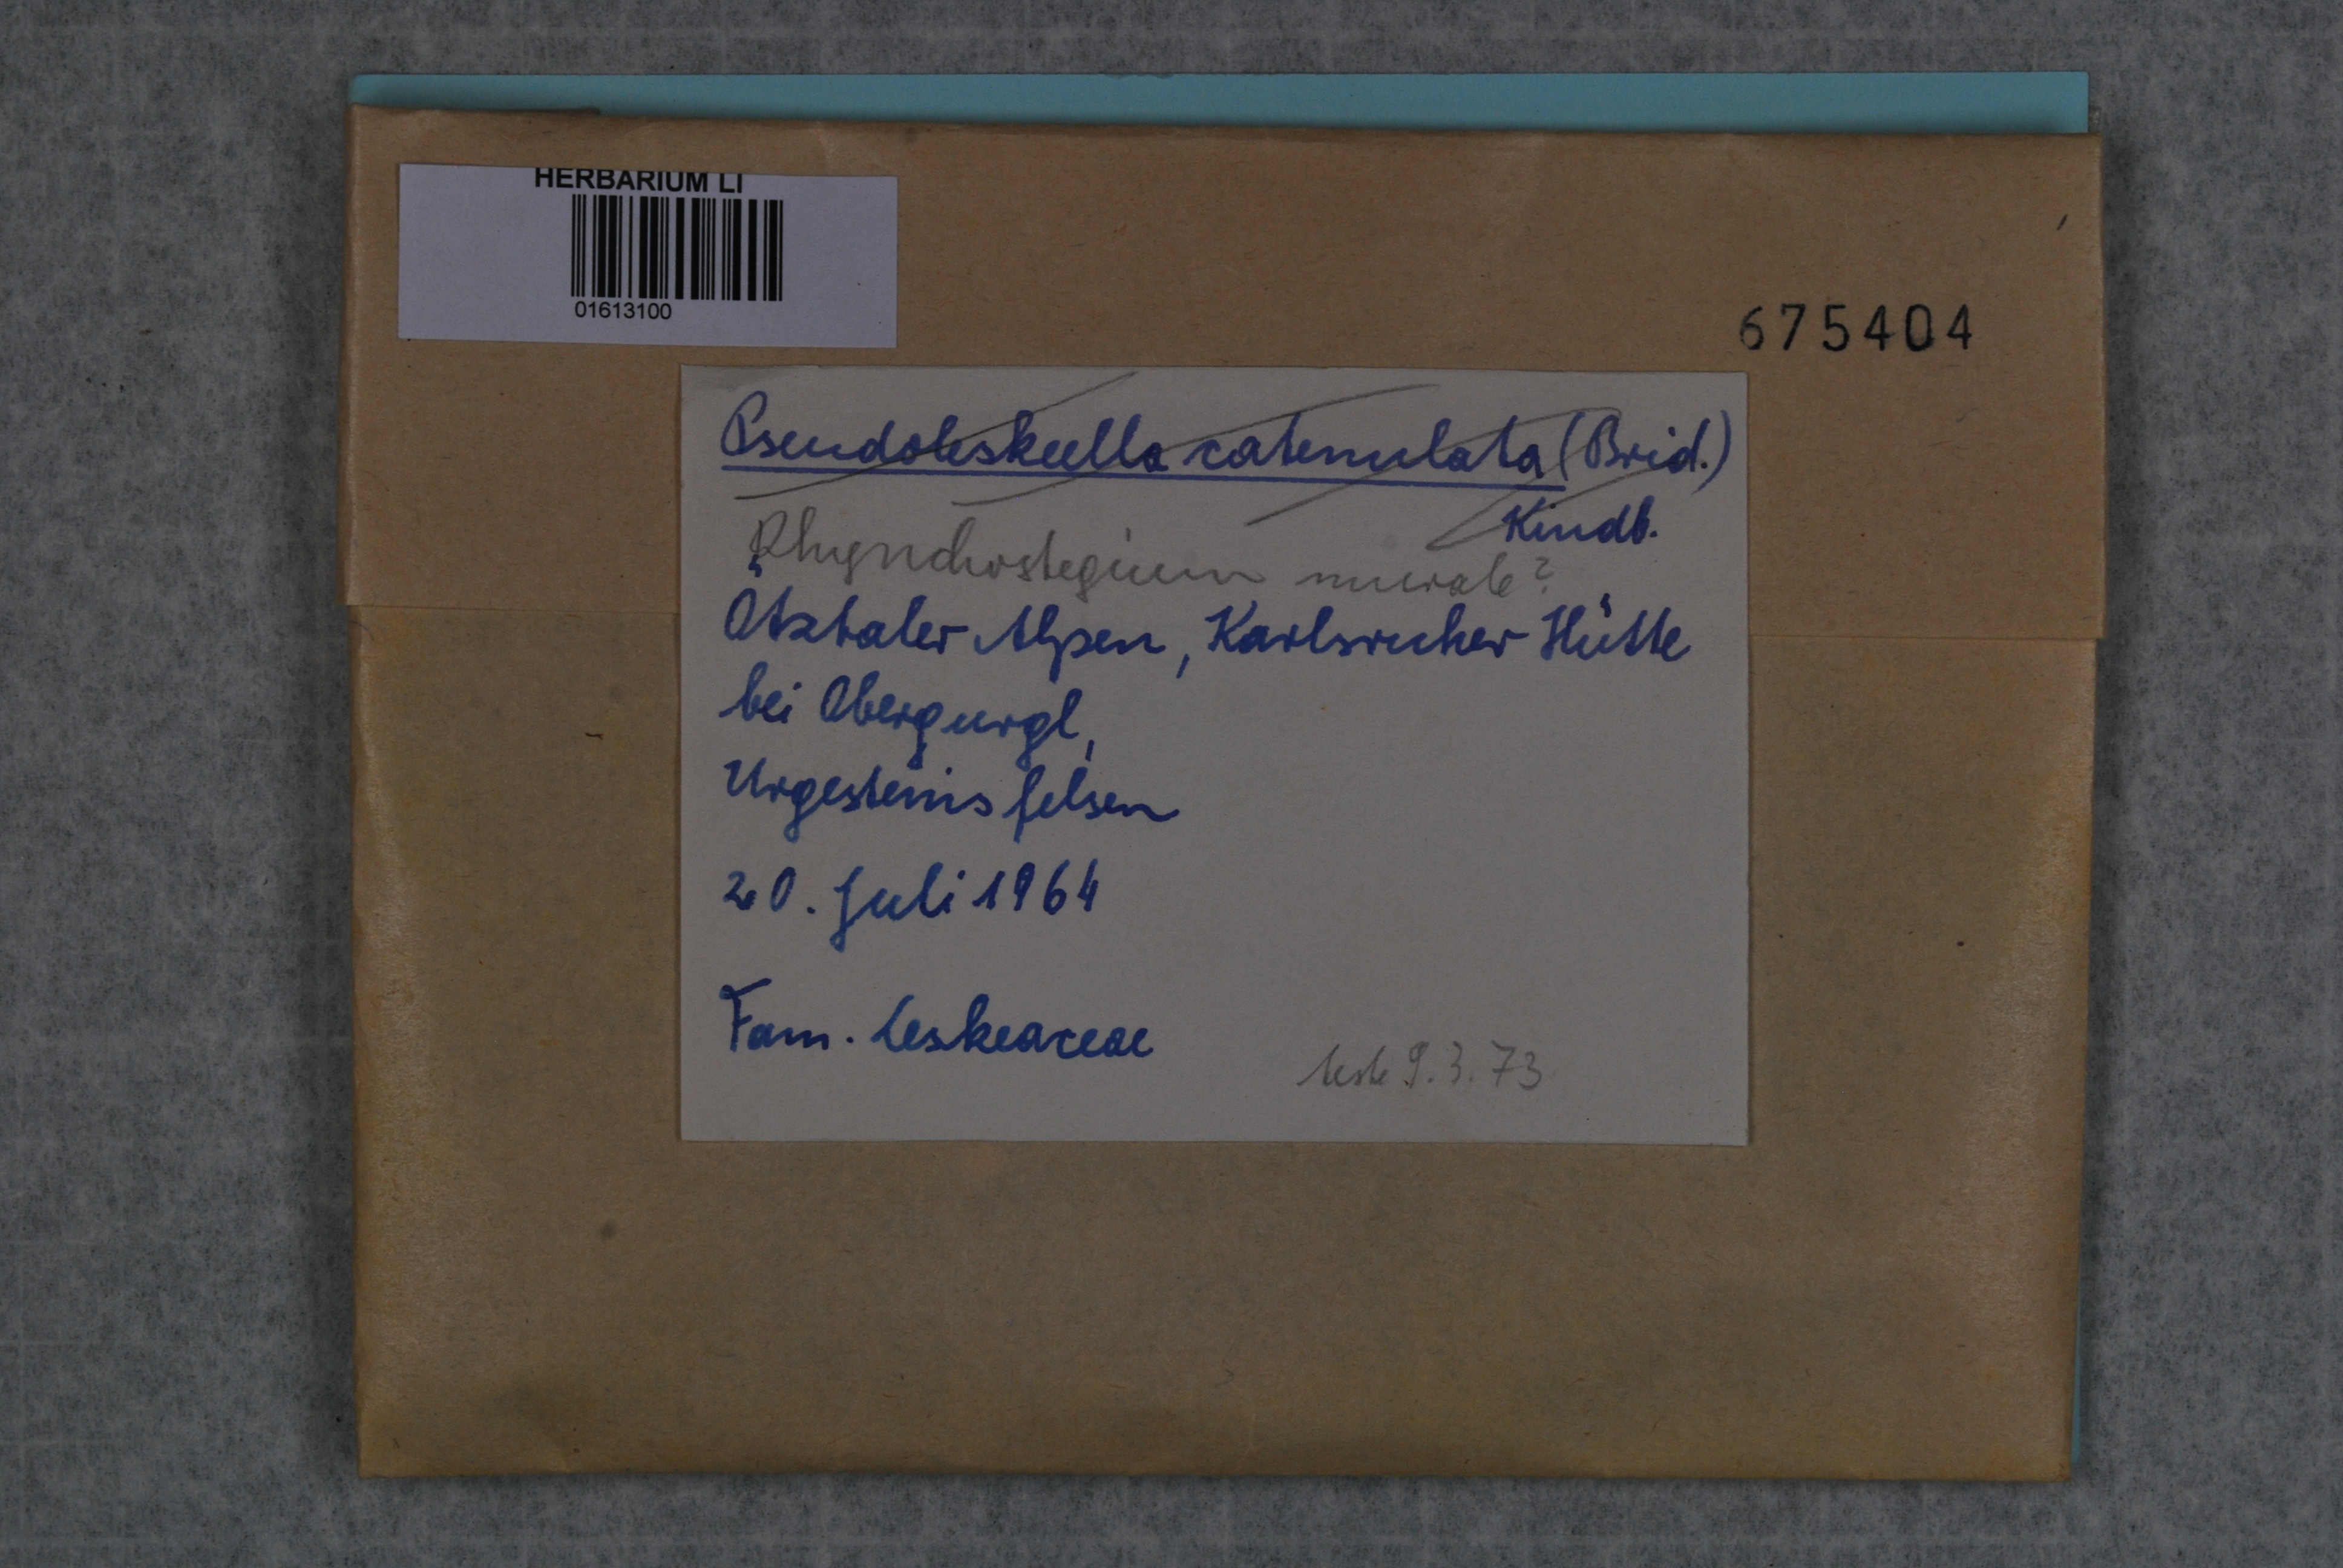 HERBARIUM LI
01613100
675404
Pseudoleskeella catenulata (Brid.)
Kindb.
Rhynchostegium murale?
Ötztaler Alpen, Karlsruher Hütte
bei Obergurgl,
Urgesteinsfelsen
20. Juli 1964
Fam. Leskeaceae
teste 9.3.73